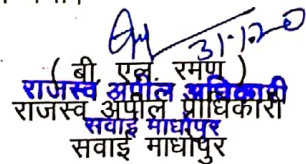 31-1-20
( बी एल. रमण )
राजस्व अपील अधिकारी
राजस्व अपील प्राधिकारी
सवाई माधोपुर
सवाई माधोपुर